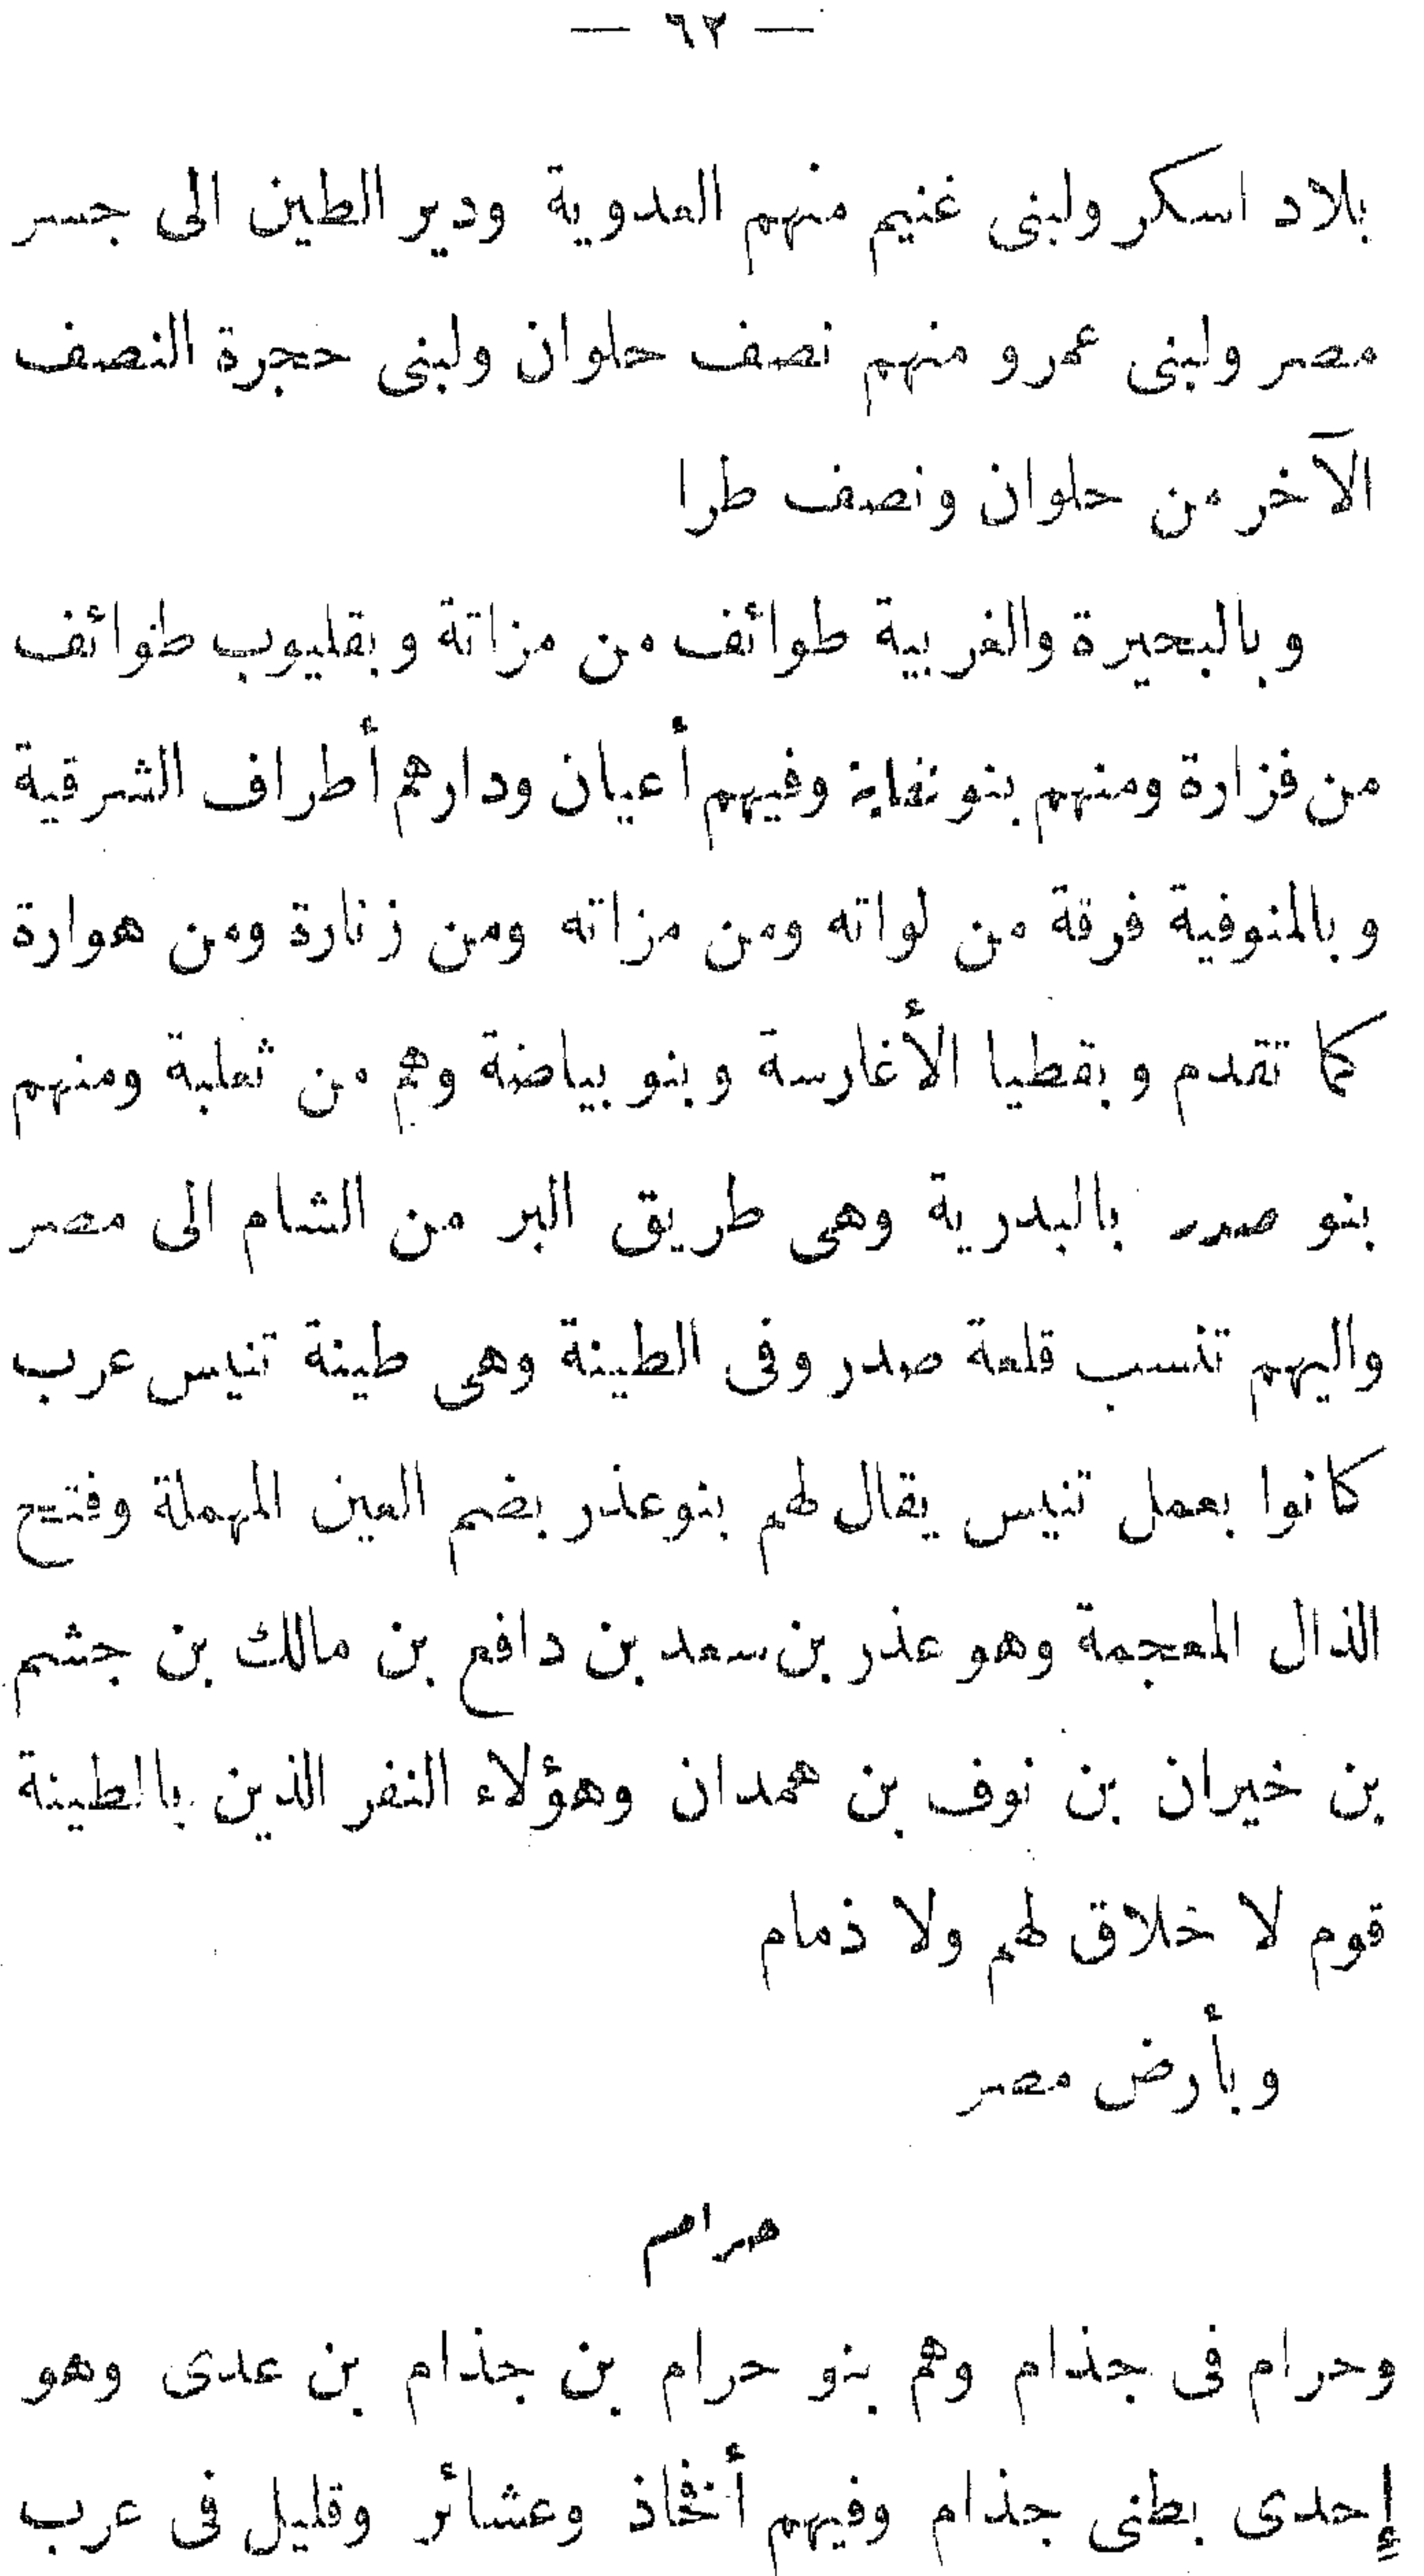 — ٦٢ —
بلاد اسكر ولبنى غنيم منهم العدوية ودير الطين الى جسر
مصر ولبنى عمرو منهم نصف حلوان ولبنى حجرة النصف
الآخر من حلوان ونصف طرا
وبالبحيرة والغربية طوائف من مزاتة وبقليوب طوائف
من فزارة ومنهم بنو نفاية وفيهم أعيان ودارهم أطراف الشرقية
وبالمنوفية فرقة من لواته ومن مزاته ومن زنارة ومن هوارة
كما تقدم وبقطيا الأغارسة وبنو بياضة وهم من ثعلبة ومنهم
بنو صدر بالبدرية وهى طريق البر من الشام الى مصر
واليهم تنسب قلعة صدر وفى الطينة وهى طينة تنيس عرب
كانوا بعمل تنيس يقال لهم بنو عذر بضم العين المهملة وفتح
الذال المعجمة وهو عذر بن سعد بن دافع بن مالك بن جشم
بن خيران بن نوف بن همدان وهؤلاء النفر الذين بالطينة
قوم لا خلاق لهم ولا ذمام
وبأرض مصر
حرام
وحرام فى جذام وهم بنو حرام بن جذام بن عدى وهو
إحدى بطنى جذام وفيهم أفخاذ وعشائر وقليل فى عرب